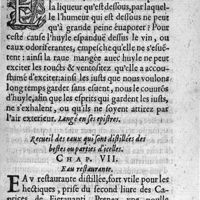 la liqueur qu'est dessous, par laquel-
le l'humeur qui est dessous ne peut
qu'à grande peine éuaporer: Pour
ceste cause l'huyle espanduë dessus le vin, ou
eaux odoriferantes, empesche qu'elle ne s'esuẽ-
tent: ainsi la eau mangée auec huyle ne peut
exciter les roults & ventositez qu'elle a accou-
stumé d'exciter: ainsi les iusts que nous voulons
long temps garder sans esuent, nous le couurõs
d'huyle, afin que les esprits qui gardent les iusts,
ne s'exhalent, ou qu'ils ne soyent attirez par
l'air exterieur. Lange en ses epistres.
Recueil des eaux qui sont distillées des
bestes ou parties d'icelles.
CHAP. VII.
Eau restaurante.
EAu restaurante distillée, fort vtile pour les
hectiques, prise du second liure des Ca-
prices de Fierauanti. Prenez vne poulle